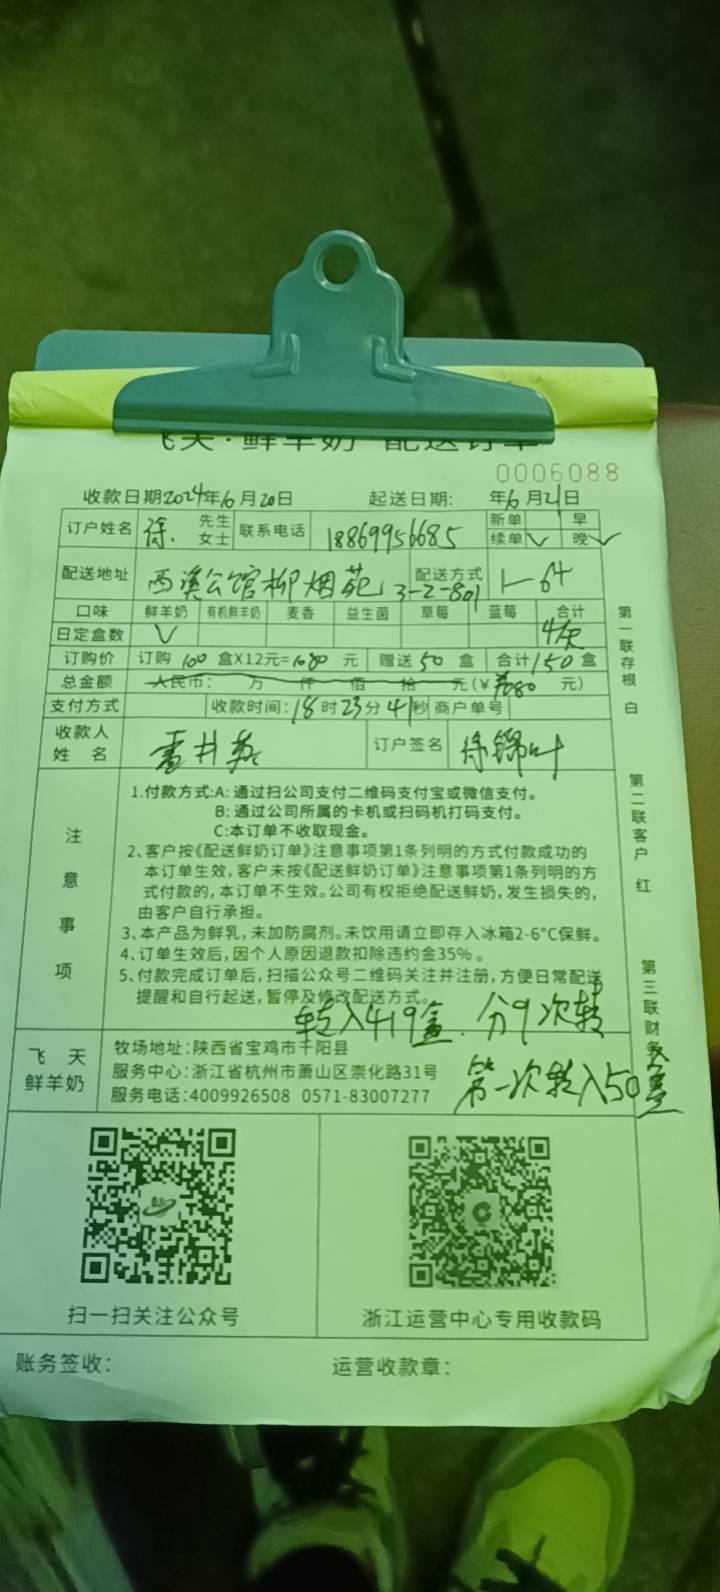 飞天·鲜羊奶 配送订单
0006088
收款日期2024年6月20日 起送日期: 年6月21日
订户姓名 徐. 先生 女士 联系电话 18869956685 新单 早
续单✓ 晚✓
配送地址 西溪公馆柳烟苑3-2-801 配送方式 1-64
口味 鲜羊奶 有机鲜羊奶 麦香 益生菌 草莓 蓝莓 合计
日定盒数 ✓ 4/次
订购价 订购 100 盒X12元=1080 元 赠送 50 盒 合计150盒
总金额 人民币: 万 仟 佰 拾 元(¥1080 元)
支付方式 收款时间:18时23分41秒 商户单号
收款人姓名 订户签名 徐锦叶
注意事项
1.付款方式:A:通过扫公司支付二维码支付宝或微信支付。
B:通过公司所属的卡机或扫码机打码支付。
C:本订单不收取现金。
2、客户按《配送鲜奶订单》注意事项第1条列明的方式付款成功的
本订单生效,客户未按《配送鲜奶订单》注意事项第1条列明的方
式付款的,本订单不生效。公司有权拒绝配送鲜奶,发生损失的,
由客户自行承担。
3、本产品为鲜乳,未加防腐剂。未饮用请立即存入冰箱2-6°C保鲜。
4、订单生效后,因个人原因退款扣除违约金35%。
5、付款完成订单后,扫描公众号二维码关注并注册,方便日常配送
提醒和自行起送,暂停及修改配送方式。
转入419盒.分9次转
第一次转入50盒
飞天
鲜羊奶
牧场地址:陕西省宝鸡市千阳县
服务中心:浙江省杭州市萧山区崇化路31号
服务电话:4009926508 0571-83007277
第一联存根 白
第二联客户 红
第三联财务
扫一扫关注公众号
浙江运营中心专用收款码
账务签收:
运营收款章: